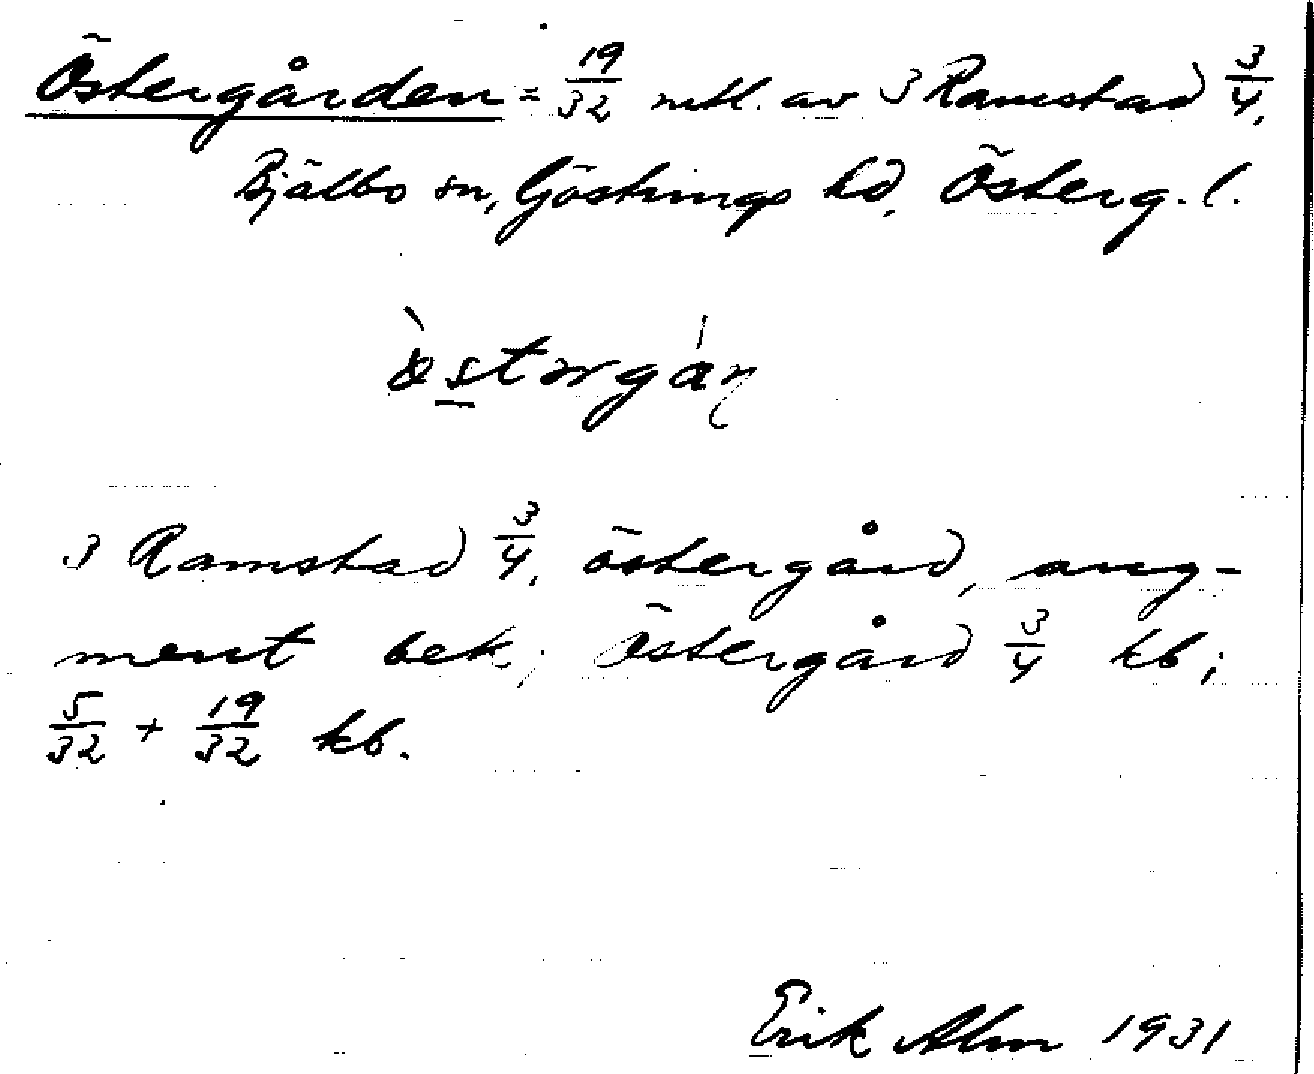 Östergården = 19/32 mtl. av 3 Ramstad 3/4,
Bjälbo sn, Göstrings hd, Österg. l.
3 Ramstad 3/4, östergård, aug-
ment bek; Östergård 3/4 kb;
5/32 + 19/32 kb.
Erik Alm 1931